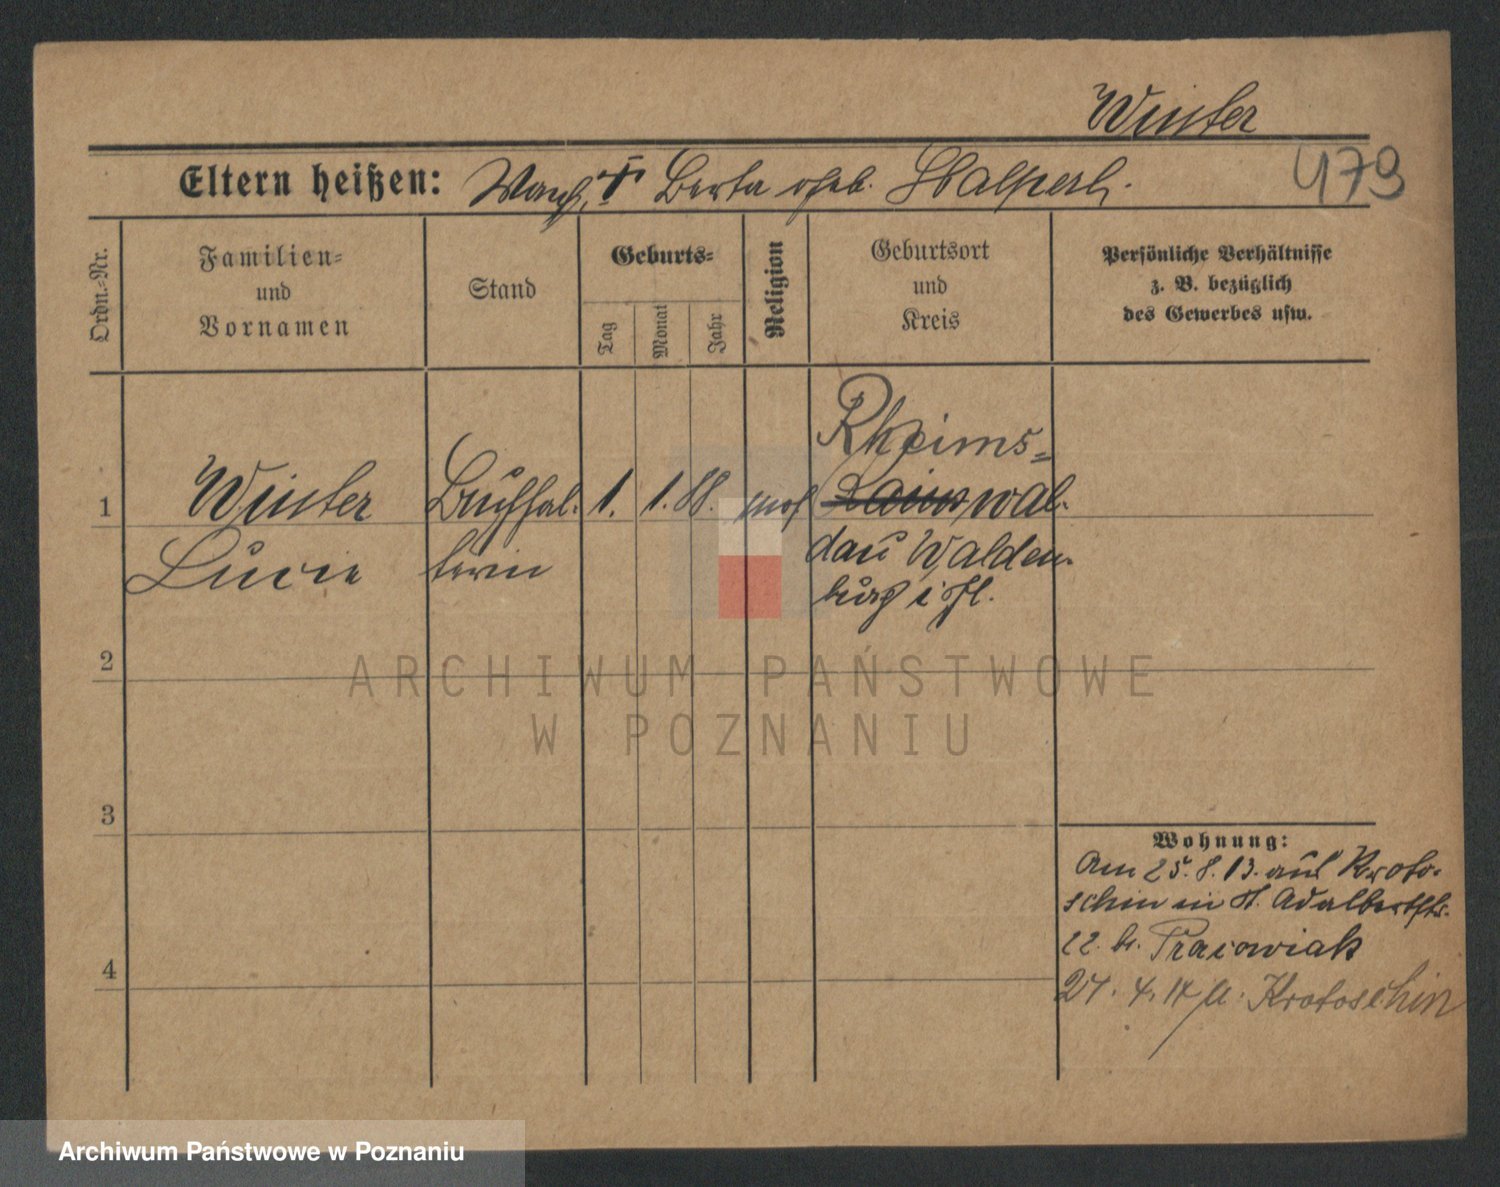 Winter
479
Eltern heißen: † Berta geb. Halpert.
Ordn.-Nr.
Familien- und Vornamen
Stand
Geburts-
Tag
Monat
Jahr
Religion
Geburtsort und Kreis
Persönliche Verhältnisse
z. B. bezüglich
des Gewerbes usw.
Rheims-
1 Winter Buchhal- 1. 1. 88. mos wal-
Lucie terin dau Walden-
burg i Schl.
2
3
4
Wohnung:
Am 25. 8. 13. aus Kroto-
schin in St. Adalbertstr.
22. b. Pracowiak
27. 4. 14 n. Krotoschin
ARCHIWUM PAŃSTWOWE
W POZNANIU
Archiwum Państwowe w Poznaniu